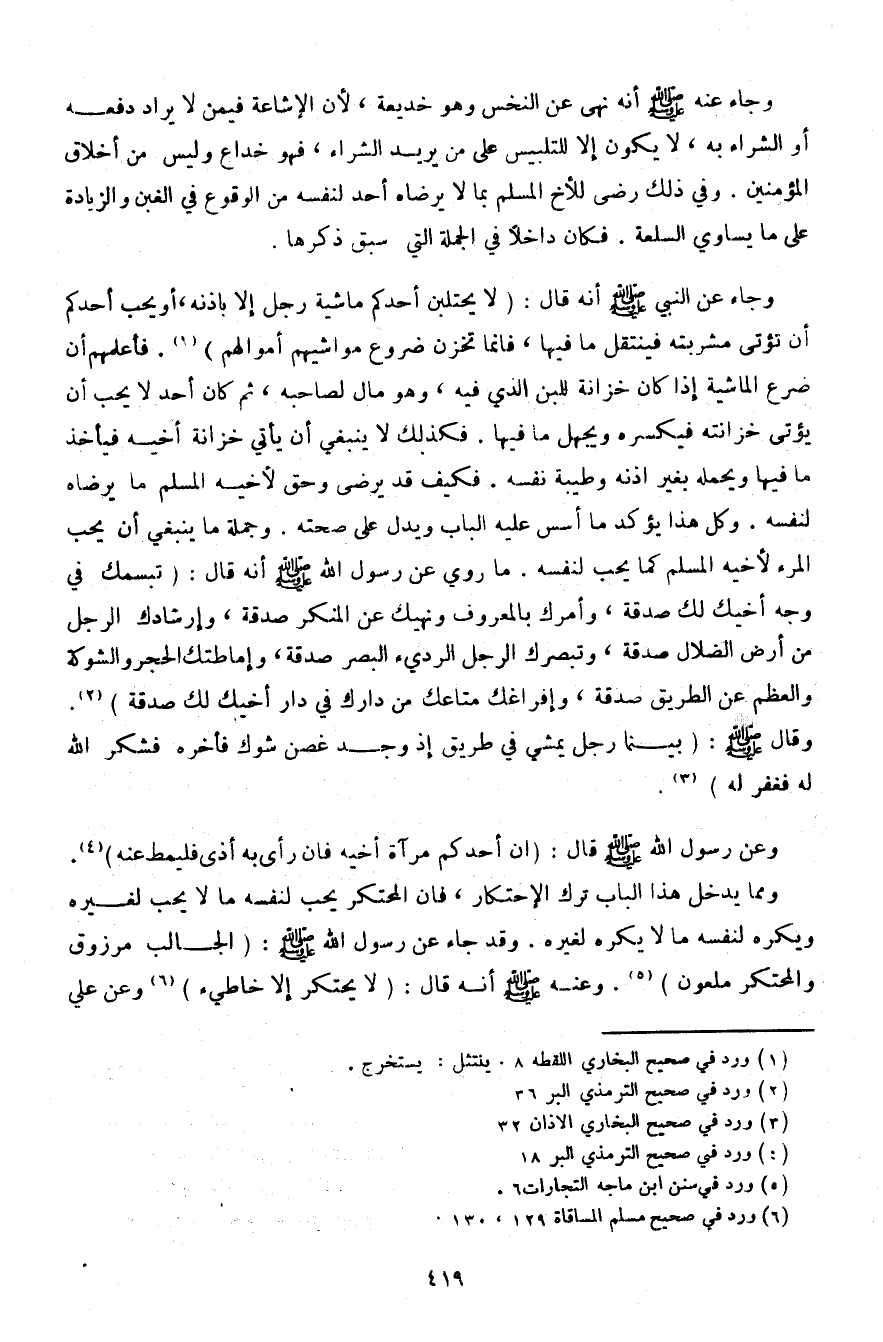 وجاء عنه ﷺ أنه نهى عن النخس وهو خديعة ، لأن الإشاعة فيمن لا يراد دفعه
أو الشراء به ، لا يكون إلا للتلبيس على من يريد الشراء ، فهو خداع وليس من أخلاق
المؤمنين . وفي ذلك رضى للأخ المسلم بما لا يرضاه أحد لنفسه من الوقوع في الغبن والزيادة
على ما يساوي السلعة . فكان داخلاً في الجملة التي سبق ذكرها .
وجاء عن النبي ﷺ أنه قال : ( لا يحتلبن أحدكم ماشية رجل إلا باذنه ، أويحب أحدكم
أن تؤتى مشربته فينتقل ما فيها ، فانما تخزن ضروع مواشيهم أموالهم ) (١) . فأعلمهم أن
ضرع الماشية إذا كان خزانة للبن الذي فيه ، وهو مال لصاحبه ، ثم كان أحد لا يحب أن
يؤتى خزانته فيكسره ويجهل ما فيها . فكذلك لا ينبغي أن يأتي خزانة أخيه فيأخذ
ما فيها ويحمله بغير اذنه وطيبة نفسه . فكيف قد يرضى وحق لأخيه المسلم ما يرضاه
لنفسه . وكل هذا يؤكد ما أسس عليه الباب ويدل على صحته . وجملة ما ينبغي أن يحب
المرء لأخيه المسلم كما يحب لنفسه . ما روي عن رسول الله ﷺ أنه قال : ( تبسمك في
وجه أخيك لك صدقة ، وأمرك بالمعروف ونهيك عن المنكر صدقة ، وإرشادك الرجل
من أرض الضلال صدقة ، وتبصرك الرجل الرديء البصر صدقة ، وإماطتك الحجر والشوكة
والعظم عن الطريق صدقة ، وإفراغك متاعك من دارك في دار أخيك لك صدقة ) (٢) .
وقال ﷺ : ( بينما رجل يمشي في طريق إذ وجد غصن شوك فأخره فشكر الله
له فغفر له ) (٣) .
وعن رسول الله ﷺ قال : ( ان أحدكم مرآة أخيه فان رأى به أذى فليمط عنه ) (٤) .
ومما يدخل هذا الباب ترك الإحتكار ، فان المحتكر يحب لنفسه ما لا يحب لغيره
ويكره لنفسه ما لا يكره لغيره . وقد جاء عن رسول الله ﷺ : ( الجالب مرزوق
والمحتكر ملعون ) (٥) . وعنه ﷺ أنه قال : ( لا يحتكر إلا خاطيء ) (٦) وعن علي
(١) ورد في صحيح البخاري اللقطه ٨ . ينتثل : يستخرج .
(٢) ورد في صحيح الترمذي البر ٣٦
(٣) ورد في صحيح البخاري الاذان ٣٢
(٤) ورد في صحيح الترمذي البر ١٨
(٥) ورد في سنن ابن ماجه التجارات ٦ .
(٦) ورد في صحيح مسلم المساقاة ١٢٩ ، ١٣٠ .
٤١٩